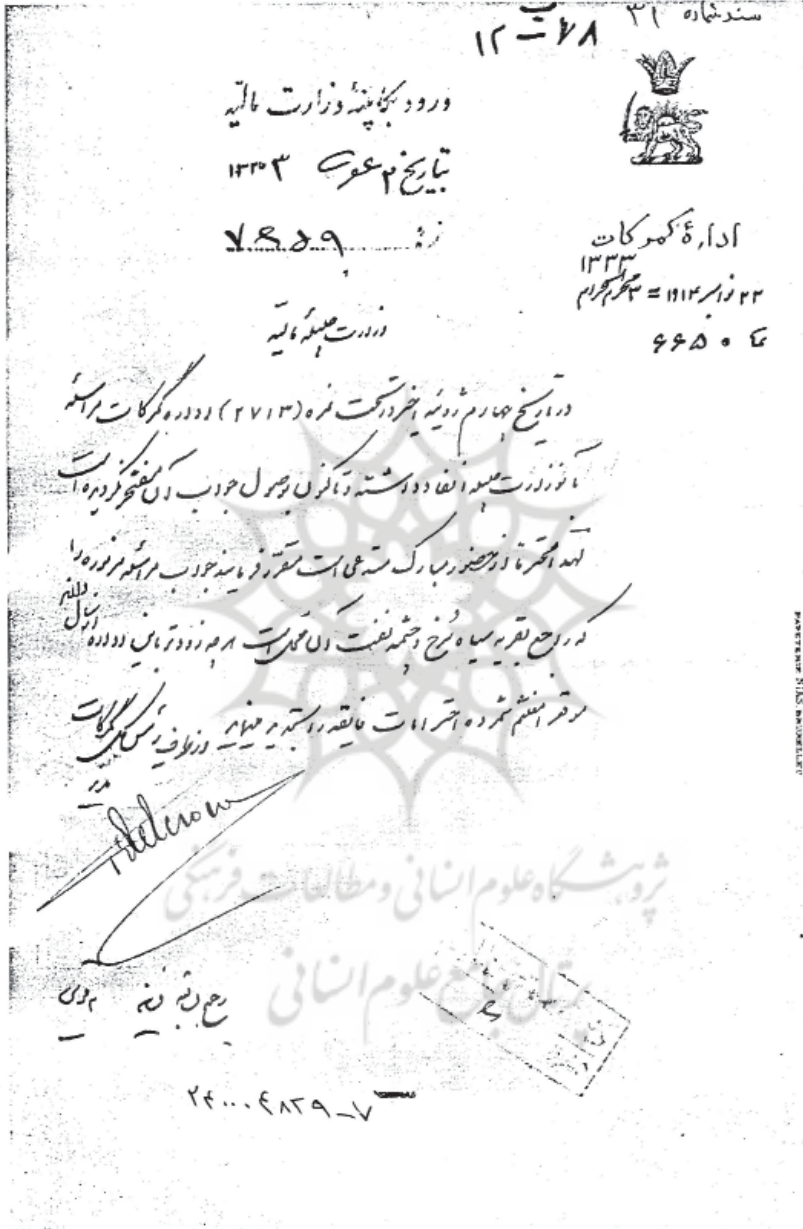 سند شماره ۳۱
۱۲ - ۷۸
ورود بکابینهٔ وزارت مالیّه
بتاریخ ۳ عقرب ۱۳۳۳
نمره ۷۶۵۹
ادارهٔ گمرکات
۱۳۳۳
۲۳ نوامبر ۱۹۱۴ = ۳ محرم الحرام
۶۶۵۰
وزارت جلیلهٔ مالیه
در تاریخ چهارم ژوئیه اخیر در تحت نمره (۲۷۱۳) اداره گمرکات مراسله
بآن وزارت جلیله انفاد داشته و تاکنون بوصول جواب آن مفتخر نگردیده است
لهذا محترماً از حضور مبارک مستدعی است مقرر فرمایند جواب مراسله مزبوره را
که راجع بقریه سیاه سُرخ و چشمه نفت آن محل است هر چه زودتر باین اداره ارسال دارند
موقع را مغتنم شمرده احترامات فایقه را تقدیم مینماید
رئیس کل گمرکات
۲۴۰۰۰۴۸۲۹_۷
PAPETERIE NIAS BRUXELLES
پژوهشگاه علوم انسانی و مطالعات فرهنگی
پرتال جامع علوم انسانی